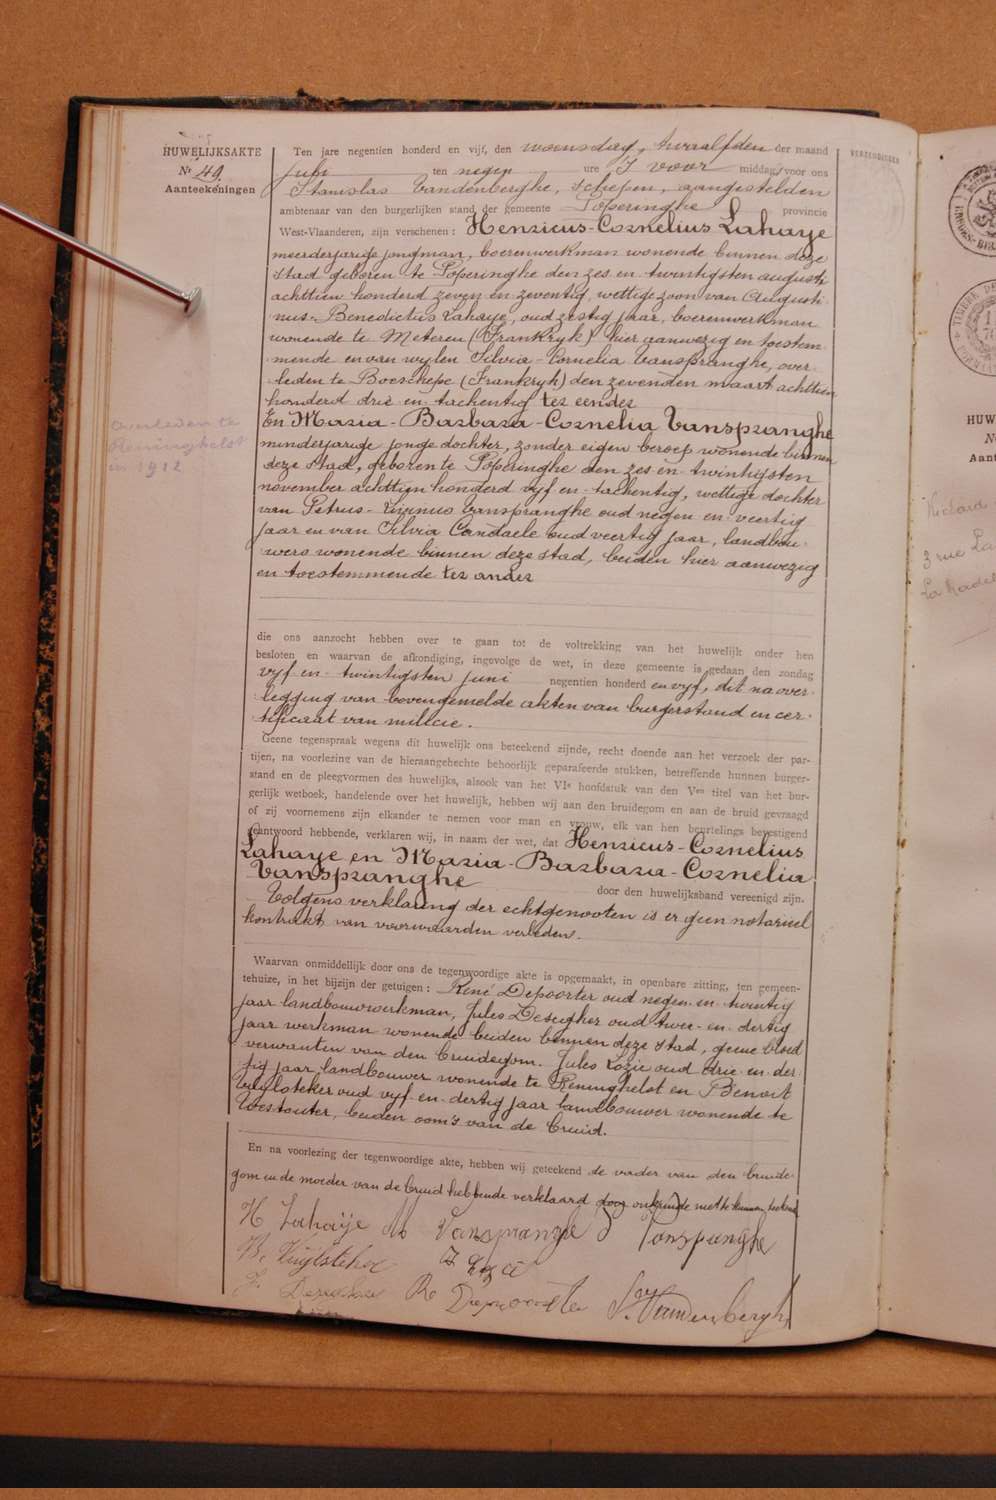 HUWELIJKSAKTE
Nr 49.
Aanteekeningen
Overleden te
Reninghelst
in 1912
Ten jare negentien honderd en vijf, den woensdag, twaalfden der maand
juli ten negen ure 's voor middag, voor ons
Stanislas Vandenberghe, schepen, aangestelden
ambtenaar van den burgerlijken stand der gemeente Poperinghe provincie
West-Vlaanderen, zijn verschenen: Henricus-Cornelius Lahaye
meerderjarige jongman, boerenwerkman wonende binnen deze
stad geboren te Poperinghe den zes en twintigsten augusti
achttien honderd zeven en zeventig, wettige zoon van Augusti-
nus-Benedictus Lahaye, oud zestig jaar, boerenwerkman
wonende te Meteren (Frankryk) hier aanwezig en toestem-
mende en van wylen Silvia-Cornelia Vanspranghe, over-
leden te Boeschepe (Frankryk) den zevenden maart achttien
honderd drie en tachentig ter eender
En Maria-Barbara-Cornelia Vanspranghe
minderjarige jonge dochter, zonder eigen beroep wonende binnen
deze stad, geboren te Poperinghe den zes en twintigsten
november achttien honderd vyf en tachentig, wettige dochter
van Petrus-Livinus Vanspranghe oud negen en veertig
jaar en van Silvia Candaele oud veertig jaar, landbou-
wers wonende binnen deze stad, beiden hier aanwezig
en toestemmende ter ander
die ons aanzocht hebben over te gaan tot de voltrekking van het huwelijk onder hen
besloten en waarvan de afkondiging, ingevolge de wet, in deze gemeente is gedaan den zondag
vyf en twintigsten juni negentien honderd en vyf, dit na over-
legging van bovengemelde akten van burgerstand en cer-
tificaat van milicie.
Geene tegenspraak wegens dit huwelijk ons beteekend zijnde, recht doende aan het verzoek der par-
tijen, na voorlezing van de hieraangehechte behoorlijk geparafeerde stukken, betreffende hunnen burger-
stand en de pleegvormen des huwelijks, alsook van het VIe hoofdstuk van den Ven titel van het bur-
gerlijk wetboek, handelende over het huwelijk, hebben wij aan den bruidegom en aan de bruid gevraagd
of zij voornemens zijn elkander te nemen voor man en vrouw, elk van hen beurtelings bevestigend
geantwoord hebbende, verklaren wij, in naam der wet, dat Henricus-Cornelius
Lahaye en Maria-Barbara-Cornelia
Vanspranghe door den huwelijksband vereenigd zijn.
Volgens verklaring der echtgenooten is er geen notarieel
kontrakt van voorwaarden verleden.
Waarvan onmiddellijk door ons de tegenwoordige akte is opgemaakt, in openbare zitting, ten gemeen-
tehuize, in het bijzijn der getuigen: René Depoorter oud negen en twintig
jaar landbouwwerkman, Jules Deseigher oud twee en dertig
jaar werkman wonende beiden binnen deze stad, geene bloed
verwanten van den bruidegom. Jules Lozie oud drie en der
tig jaar, landbouwer wonende te Reninghelst en Benoit
Vuylsteker oud vyf en dertig jaar landbouwer wonende te
Westouter, beiden oom's van de bruid.
En na voorlezing der tegenwoordige akte, hebben wij geteekend de vader van den bruide-
gom en de moeder van de bruid hebbende verklaard door onkunde niet te kunnen teekenen
H Lahaÿe M Vanspranghe Vanspranghe
B. Vuylsteker J Lozie
J. R Depoorter St. Vandenberghe
VERZENDINGEN
HUW
N
Aant
Richard
3 rue La
La Madel